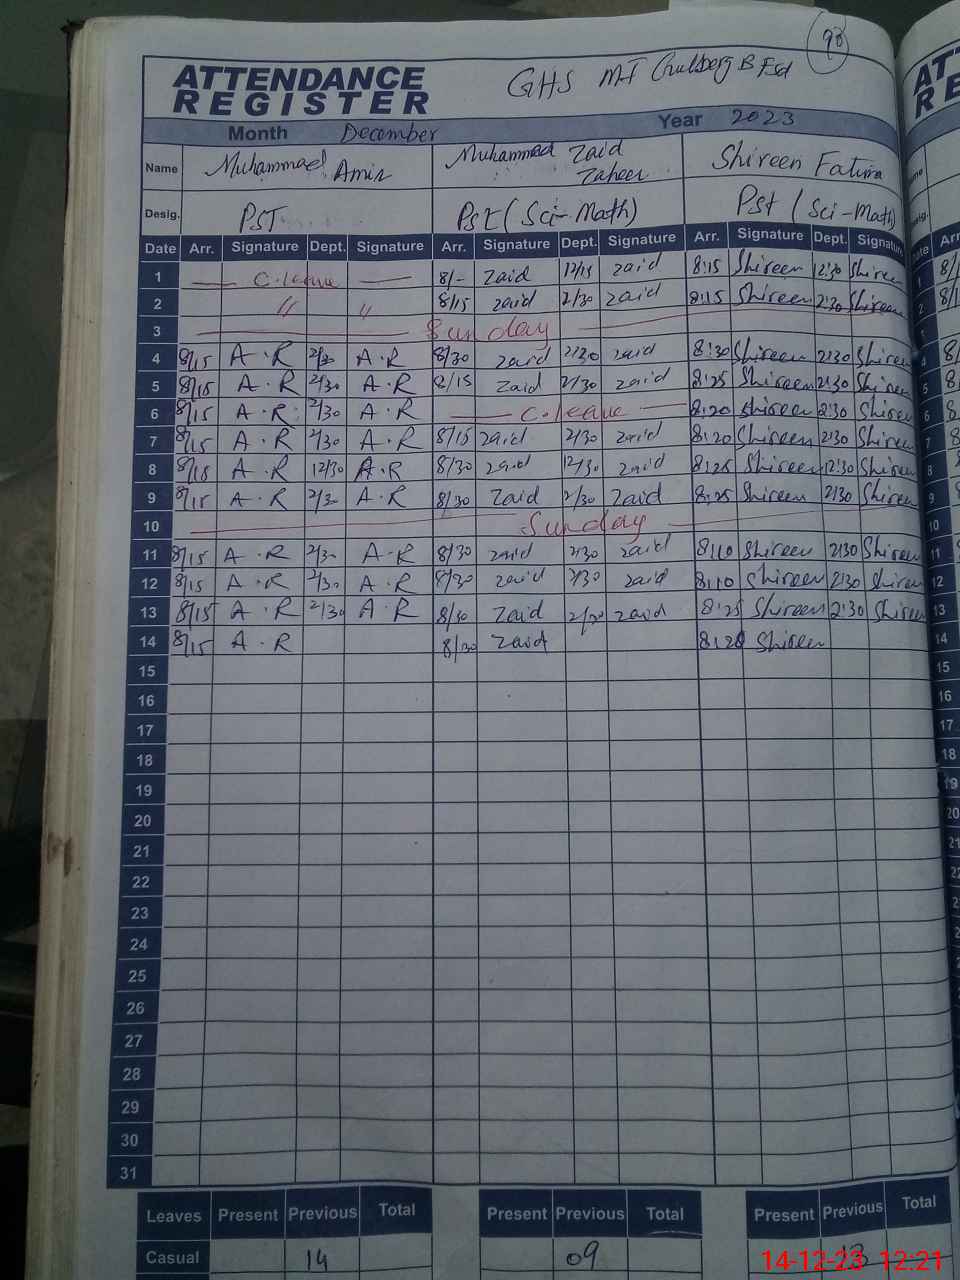 98
ATTENDANCE
REGISTER
GHS M-I Gulberg B Fsd
Month December Year 2023
Name Muhammad Amir Muhammad Zaid Zaheer Shireen Fatima
Desig. PST Pst (Sci-Math) Pst (Sci-Math)
Date Arr. Signature Dept. Signature Arr. Signature Dept. Signature Arr. Signature Dept. Signature
1 C.leave 8/- zaid 12/15 zaid 8:15 Shireen 12:30 Shireen
2 〃 〃 8/15 zaid 2/30 zaid 8:15 Shireen 2:30 Shireen
3 Sunday
4 8/15 A.R 2/30 A.R 8/30 zaid 2/30 zaid 8:30 Shireen 2:30 Shireen
5 8/15 A.R 2/30 A.R 8/15 zaid 2/30 zaid 8:25 Shireen 2:30 Shireen
6 8/15 A.R 2/30 A.R C.leave 8:20 Shireen 2:30 Shireen
7 8/15 A.R 2/30 A.R 8/15 zaid 2/30 zaid 8:20 Shireen 2:30 Shireen
8 8/15 A.R 12/30 A.R 8/30 zaid 12/30 zaid 8:25 Shireen 12:30 Shireen
9 8/15 A.R 2/30 A.R 8/30 zaid 2/30 zaid 8:25 Shireen 2:30 Shireen
10 Sunday
11 8/15 A.R 2/30 A.R 8/30 zaid 2/30 zaid 8:10 Shireen 2:30 Shireen
12 8/15 A.R 2/30 A.R 8/30 zaid 2/30 zaid 8:10 Shireen 2:30 Shireen
13 8/15 A.R 2/30 A.R 8/30 zaid 2/30 zaid 8:25 Shireen 2:30 Shireen
14 8/15 A.R 8/30 zaid 8:20 Shireen
15
16
17
18
19
20
21
22
23
24
25
26
27
28
29
30
31
Leaves Present Previous Total Present Previous Total Present Previous Total
Casual 14 09
14-12-23 12:21